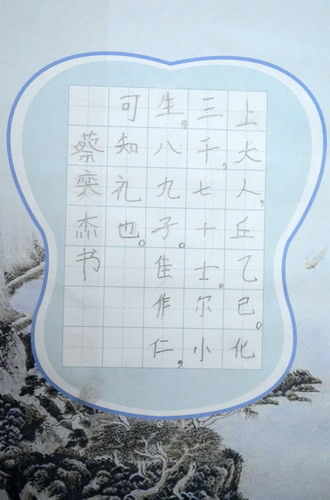 上大人,丘乙已。化
三千,七十士。尔小
生,八九子。佳作仁,
可知礼也。
蔡奕杰书